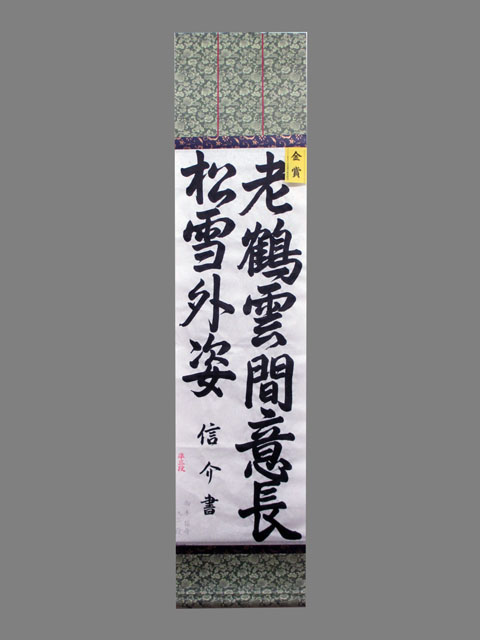 金賞
老鶴雲間意長
松雪外姿
信介書